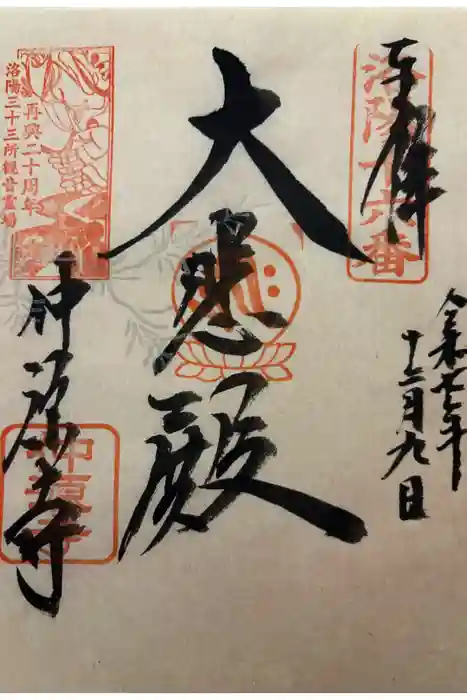 奉拝
洛陽十六番
令和七年
十二月九日
大悲殿
再興二十周年
洛陽三十三所観音霊場
仲源寺
仲源寺